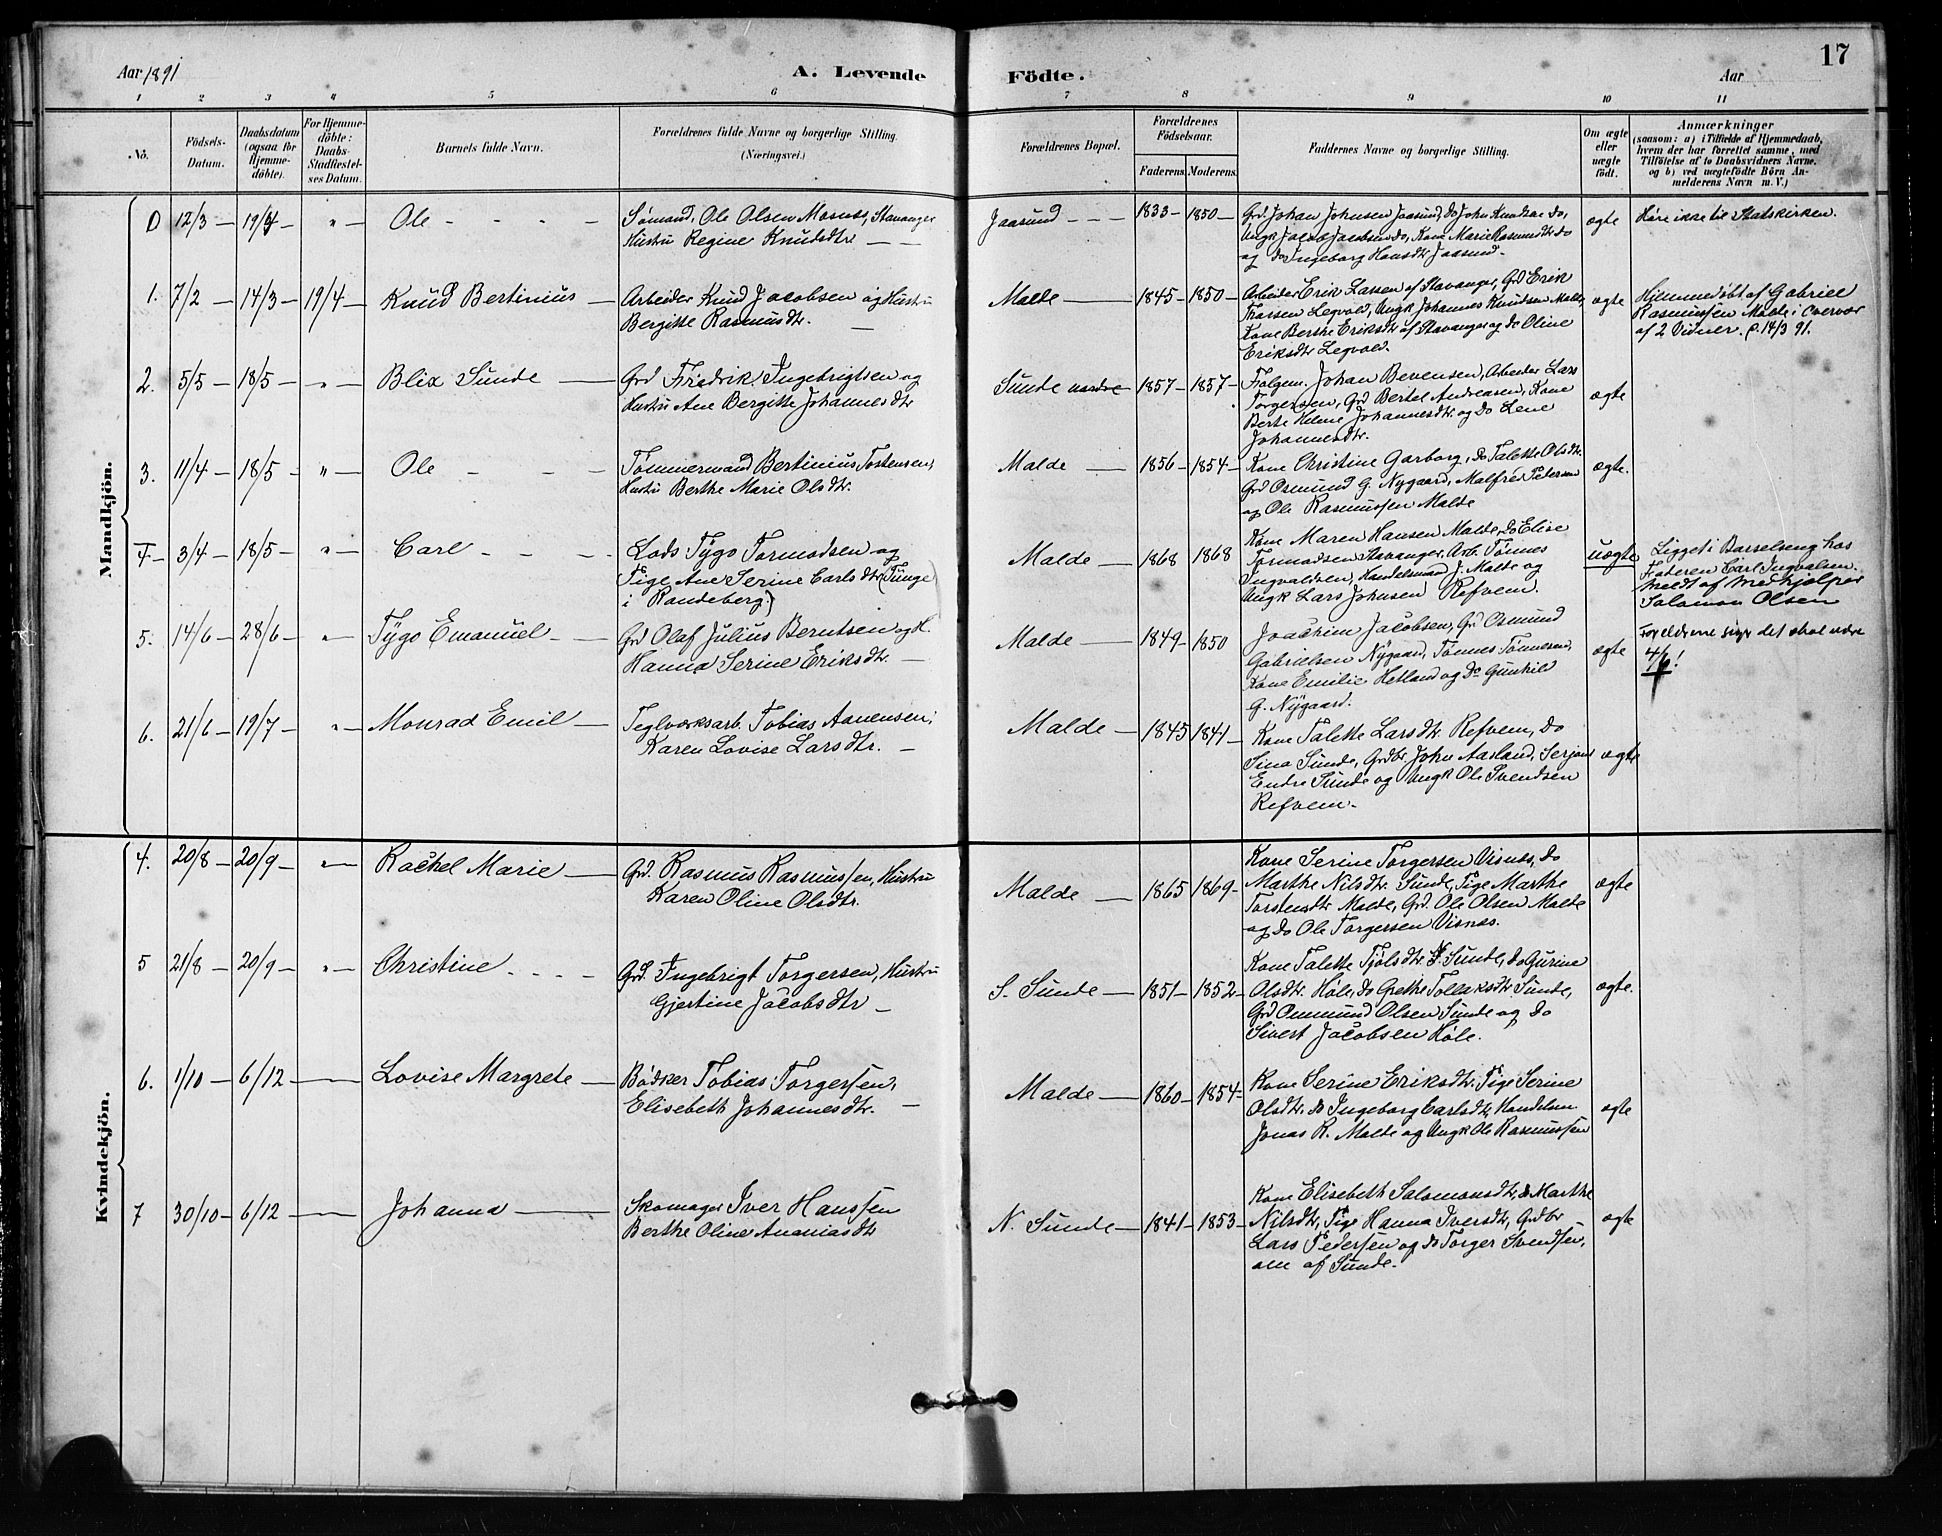 Aar 1891
A. Levende
Födte.
Aar
17
1 2 3 4 5 6 7 8 9 10 11
No.
Födsels-
Datum.
Daabsdatum
(ogsaa for
Hjemme-
döbte).
For Hjemme-
döbte:
Daabs-
Stadfæstel-
ses Datum.
Barnets fulde Navn.
Forældrenes fulde Navne og borgerlige Stilling.
(Næringsvei.)
Forældrenes Bopæl.
Forældrenes
Födselsaar.
Faderens. Moderens.
Faddernes Navne og borgerlige Stilling.
Om ægte
eller
uægte
födt.
Anmærkninger
(saasom: a) i Tilfælde af Hjemmedaab,
hvem der har forrettet samme, med
Tilföielse af to Daabsvidners Navne.
og b) ved uægtefödte Börn An-
melderens Navn m. V.)
Mandkjön.
0 12/3 — 19/4 — " — Ole - - - -
Sømand, Ole Olsen Mosnes, Stavanger
Hustru Regine Knudsdtr — —
Jaasund — — 1833 — 1850 —
Grd. Johan Johnsen Jaasund, do John Knudsen do,
Ungk Jacob Jacobsen do, Kone Marie Rasmusdtr do
og do Ingeborg Hansdtr Jaasund.
ægte
Høre ikke til Statskirken.
1. 7/2 — 14/3 — 19/4 — Knud Bertinius —
Arbeider Knud Jacobsen og Hustru
Bergitte Rasmusdtr. —
Malde — 1845 — 1850 —
Arbeider Erik Lassen af Stavanger, Grd Erik
Thorsen Legvold, Ungk Johannes Knudsen Malde,
Kone Berthe Eriksdtr af Stavanger og do Oline
Eriksdtr Legvold.
ægte
Hjemmedøbt af Gabriel
Rasmussen Malde i Overvær
af 2 Vidner. P. 14/3 91.
2. 5/5 — 18/5 — " — Blix Sunde —
Grd Fredrik Ingebrigtsen og
Hustru Ane Bergitte Johannesdtr
Sunde nordre — 1857 — 1857 —
Følgem. Johan Bevensen, Arbeider Lars
Torgersen, Grd Bertel Andreasen, Kone
Berte Helene Johannesdtr. og do Lene
Johannesdtr.
ægte
3. 11/4 — 18/5 — " — Ole - - -
Tømmermand Bertinius Tostensen,
Hustru Berthe Marie Olsdtr.
Malde — 1856 — 1854 —
Kone Christine Garborg, do Talette Olsdtr.
Grd Osmund G. Nygaard, Malfred Petersen
og Ole Rasmussen Malde
ægte.
4 — 3/4 — 18/5 — " — Carl - - -
Lods Tygo Tormodsen og
Pige Ane Serine Carlsdtr (Tunge
i Randeberg.)
Malde — 1868 1868
Kone Maren Hansen Malde, do Elise
Tormodsen Stavanger, Arb. Tønnes
Ingvaldsen, Handelsmand J. Malde og
Ungk Lars Johnsen Refvem.
uægte
Ligget i Barselseng hos
Faderen Carl Ingvalsen.
Meldt af Medhjælper
Salomon Olsen
5. 14/6 — 28/6 — " — Tygo Emanuel — —
Grd Olaf Julius Berntsen og H.
Hanna Serine Eriksdtr. —
Malde — 1849 — 1850
Joachim Jacobsen, Grd Osmund
Gabrielsen Nygaard, Tønnes Tønnesen,
Kone Emilie Hetland og do Gunhild
G. Nygaard.
ægte
Forældrene siger det skal være
4/6!
6. 21/6 — 19/7 — " — Monrad Emil —
Teglværksarb. Tobias Aanensen,
Karen Lovise Larsdtr. —
Malde — 1845 1841 —
Kone Talette Larsdtr. Refvem, do
Sina Sunde, Grdbr. John Aasland, Serjant
Endre Sunde og Ungk Ole Svendsen
Refvem.
ægte
Kvindekjön.
4. 20/8 — 20/9 — " — Rachel Marie —
Grd. Rasmus Rasmussen, Hustru
Karen Oline Olsdtr.
Malde — 1865 1869 —
Kone Serine Torgersen Visnes, do
Marthe Nilsdtr. Sunde, Pige Marthe
Torstensdtr Malde, Grd. Ole Olsen Malde
og do Ole Torgersen Visnæs.
ægte
5 21/8 — 20/9 — " — Christine - - - -
Grd. Ingebrigt Torgersen, Hustru
Gjertine Jacobsdtr —
S. Sunde — 1851 — 1852 —
Kone Talette Tjølsdtr S. Sunde, do Gurine
Olsdtr. Høle, do Grethe Tollaksdtr Sunde,
Grd Osmund Olsen Sunde og do
Sivert Jacobsen Høle.
ægte.
6. 1/10 — 6/12 — — Lovise Margrete —
Bødker Tobias Torgersen,
Elisebeth Johannesdtr. —
Malde — 1860 — 1854 —
Kone Serine Eriksdtr. Pige Serine
Olsdtr. do Ingeborg Carlsdtr, Handelsm.
Jonas R. Malde og Ungk Ole Rasmussen
ægte
7 30/10 — 6/12 — — Johanna —
Skomager Iver Hanssen
Berthe Oline Ananiasdtr
N. Sunde — 1841 — 1853 —
Kone Elisebeth Salomonsdtr, do Marthe
Nilsdtr, Pige Hanna Iversdtr, Grdbr
Lars Pedersen og do Torger Svendsen,
alle af Sunde.
ægte